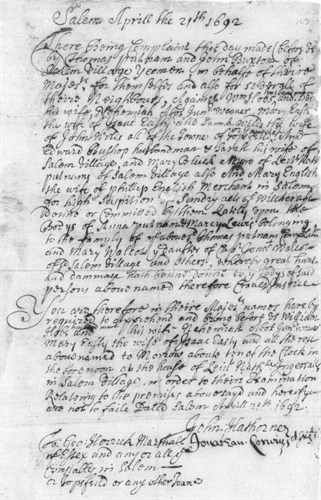 Salem Aprill the 21th 1692
There Being Complaint this day made (before us)
by Thomas putnam and John Buxton of
Salem Village Yeomen in behalfe of theire
Majests for themselfes and also for severall of
theire Neighbours, Against Wm Hobs and
his wife Nehemiah Abot Junr Weaver Mary Easty
the wife of Isaac Easty and Wilds the wife
of John Wilds all of the Towne of
Edward Bushop husbandman & Sarah his wife of
Salem Village, and Mary Black a Negro of Leiut Nath
putnams of Salem Village also And Mary English
the wife of phillip English Merchant in Salem
for high Suspition of Sundry acts of Witchcraft
donne or Committed by them Lately upon the
Bodys of Anna putnam & Marcy Lewis belonging
to the family of Thomas putnam
and Mary Walcot
of Salem Village and others, whereby great hurt
and dammage hath benne donne to ye bodys of said
persons above named therefore Craved Justice
You are therefore in theire Majests names hereby
required to apprehend and bring before us William
Hobs his wife Nehemiah Abot Junr
Mary Easty the wife of Isaac Easty and all the rest
abovenamed to Morrow aboute ten of the Clock in
the forenoon at the house of Leiut Nath Ingersals
in Salem Village, in order to theire Examination
Relateing to the premises abovesayd and hereof you
are not to faile Dated Salem Aprill 21th 1692
John Hathorne
Jonathan Corwin
To: Geo: Herrick Marshall
of Essex and any or all ye
Constables in Salem
or Topsfield or any other Towne